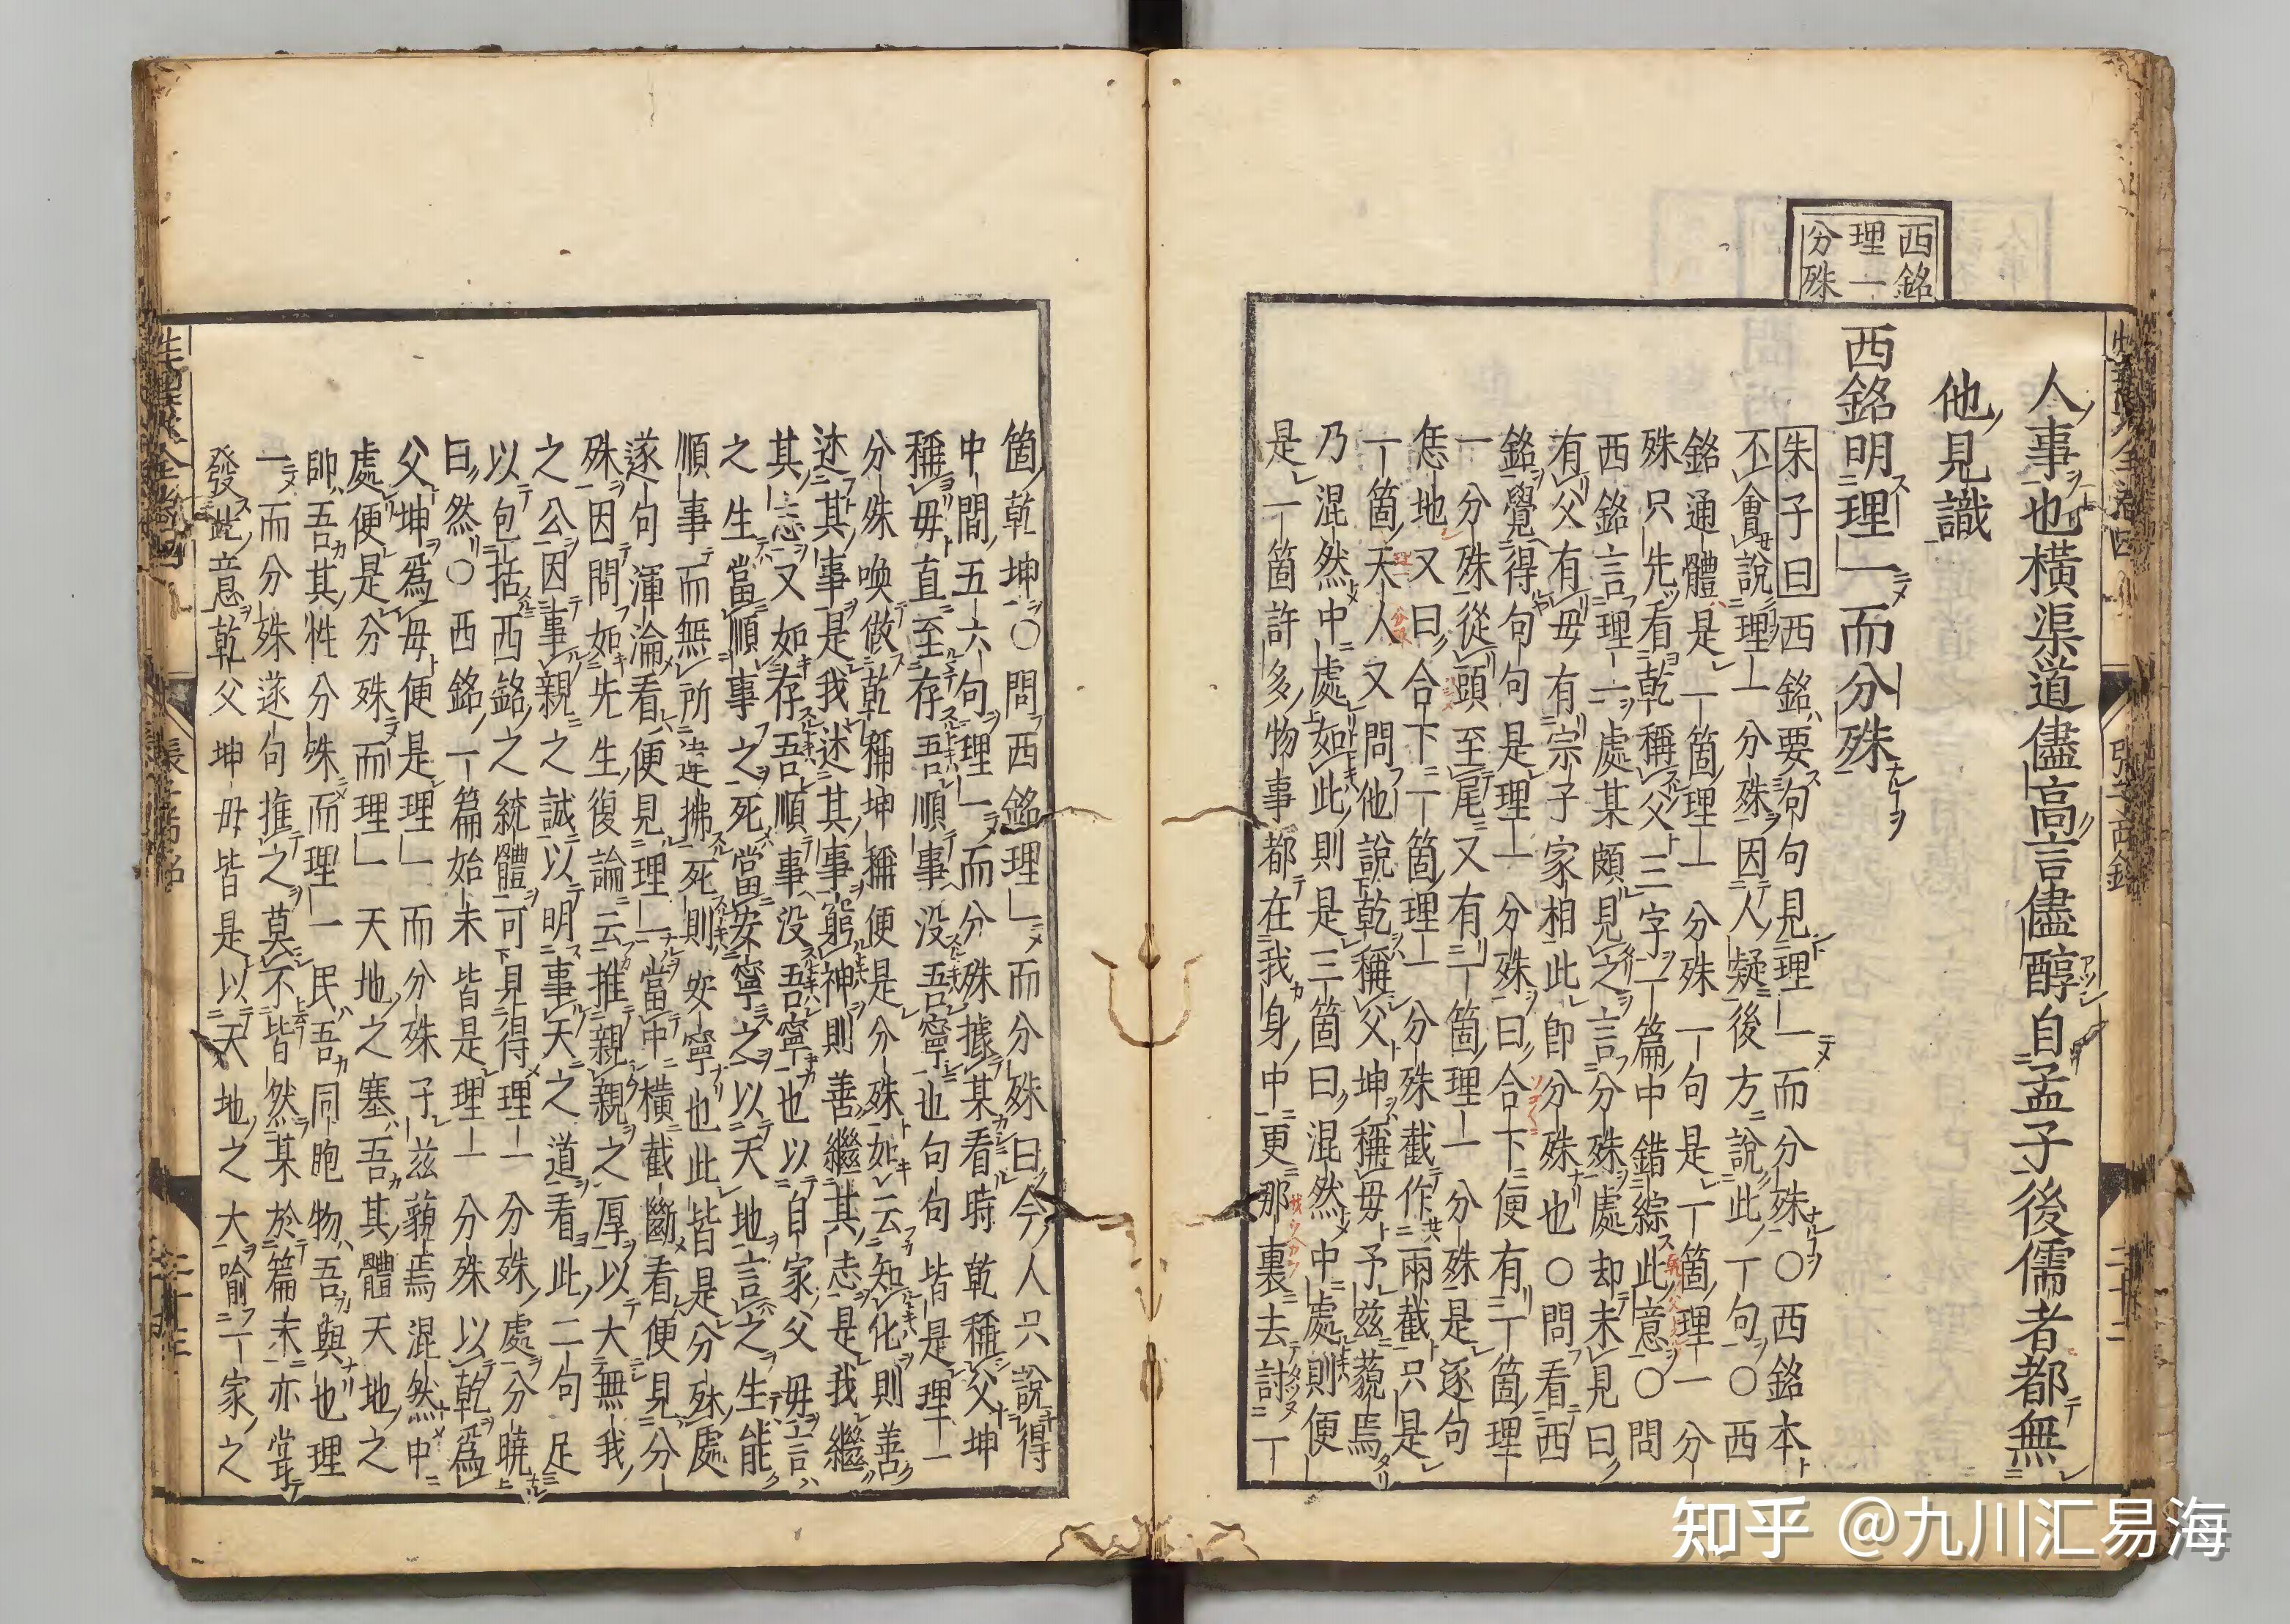 西銘
理一
分殊
人事也橫渠道儘高言儘醇自孟子後儒者都無
他見識
西銘明理一而分殊
朱子曰西銘要句句見理一而分殊〇西銘本
不會說理一分殊因人疑後方說此一句〇西
銘通體是一箇理一分殊一句是一箇理一分
殊只先看乾稱父三字一篇中錯綜此意〇問
西銘言理一處某頗見之言分殊處却未見曰
有父有母有宗子家相此卽分殊也〇問看西
銘覺得句句是理一分殊曰合下便有一箇理
一分殊從頭至尾又有一箇理一分殊是逐句
恁地又曰合下一箇理一分殊截作兩截只是
一箇天人又問他說乾稱父坤稱母予兹藐焉
乃混然中處如此則是三箇曰混然中處則便
是一箇許多物事都在我身中更那裏去討一
箇乾坤〇問西銘理一而分殊曰今人只說得
中間五六句理一而分殊據某看時乾稱父坤
稱母直至存吾順事没吾寧也句句皆是理一
分殊喚做乾稱坤稱便是分殊如云知化則善
述其事是我述其事窮神則善繼其志是我繼
其志又如存吾順事没吾寧也以自家父母言
之生當順事之死當安寧之以天地言之生能
順事而無所違拂死則安寧也此皆是分殊處
逐句渾淪看便見理一當中橫截斷看便見分
殊因問如先生復論云推親親之厚以大無我
之公因事親之誠以明事天之道看此二句足
以包括西銘之統體可見得理一分殊處分曉
曰然〇西銘一篇始末皆是理一分殊以乾爲
父坤爲母便是理一而分殊子兹藐焉混然中
處便是分殊而理一天地之塞吾其體天地之
帥吾其性分殊而理一民吾同胞物吾與也理
一而分殊逐句推之莫不皆然某於篇末亦嘗
發此意乾父坤母皆是以天地之大喻一家之
知乎 @九川汇易海